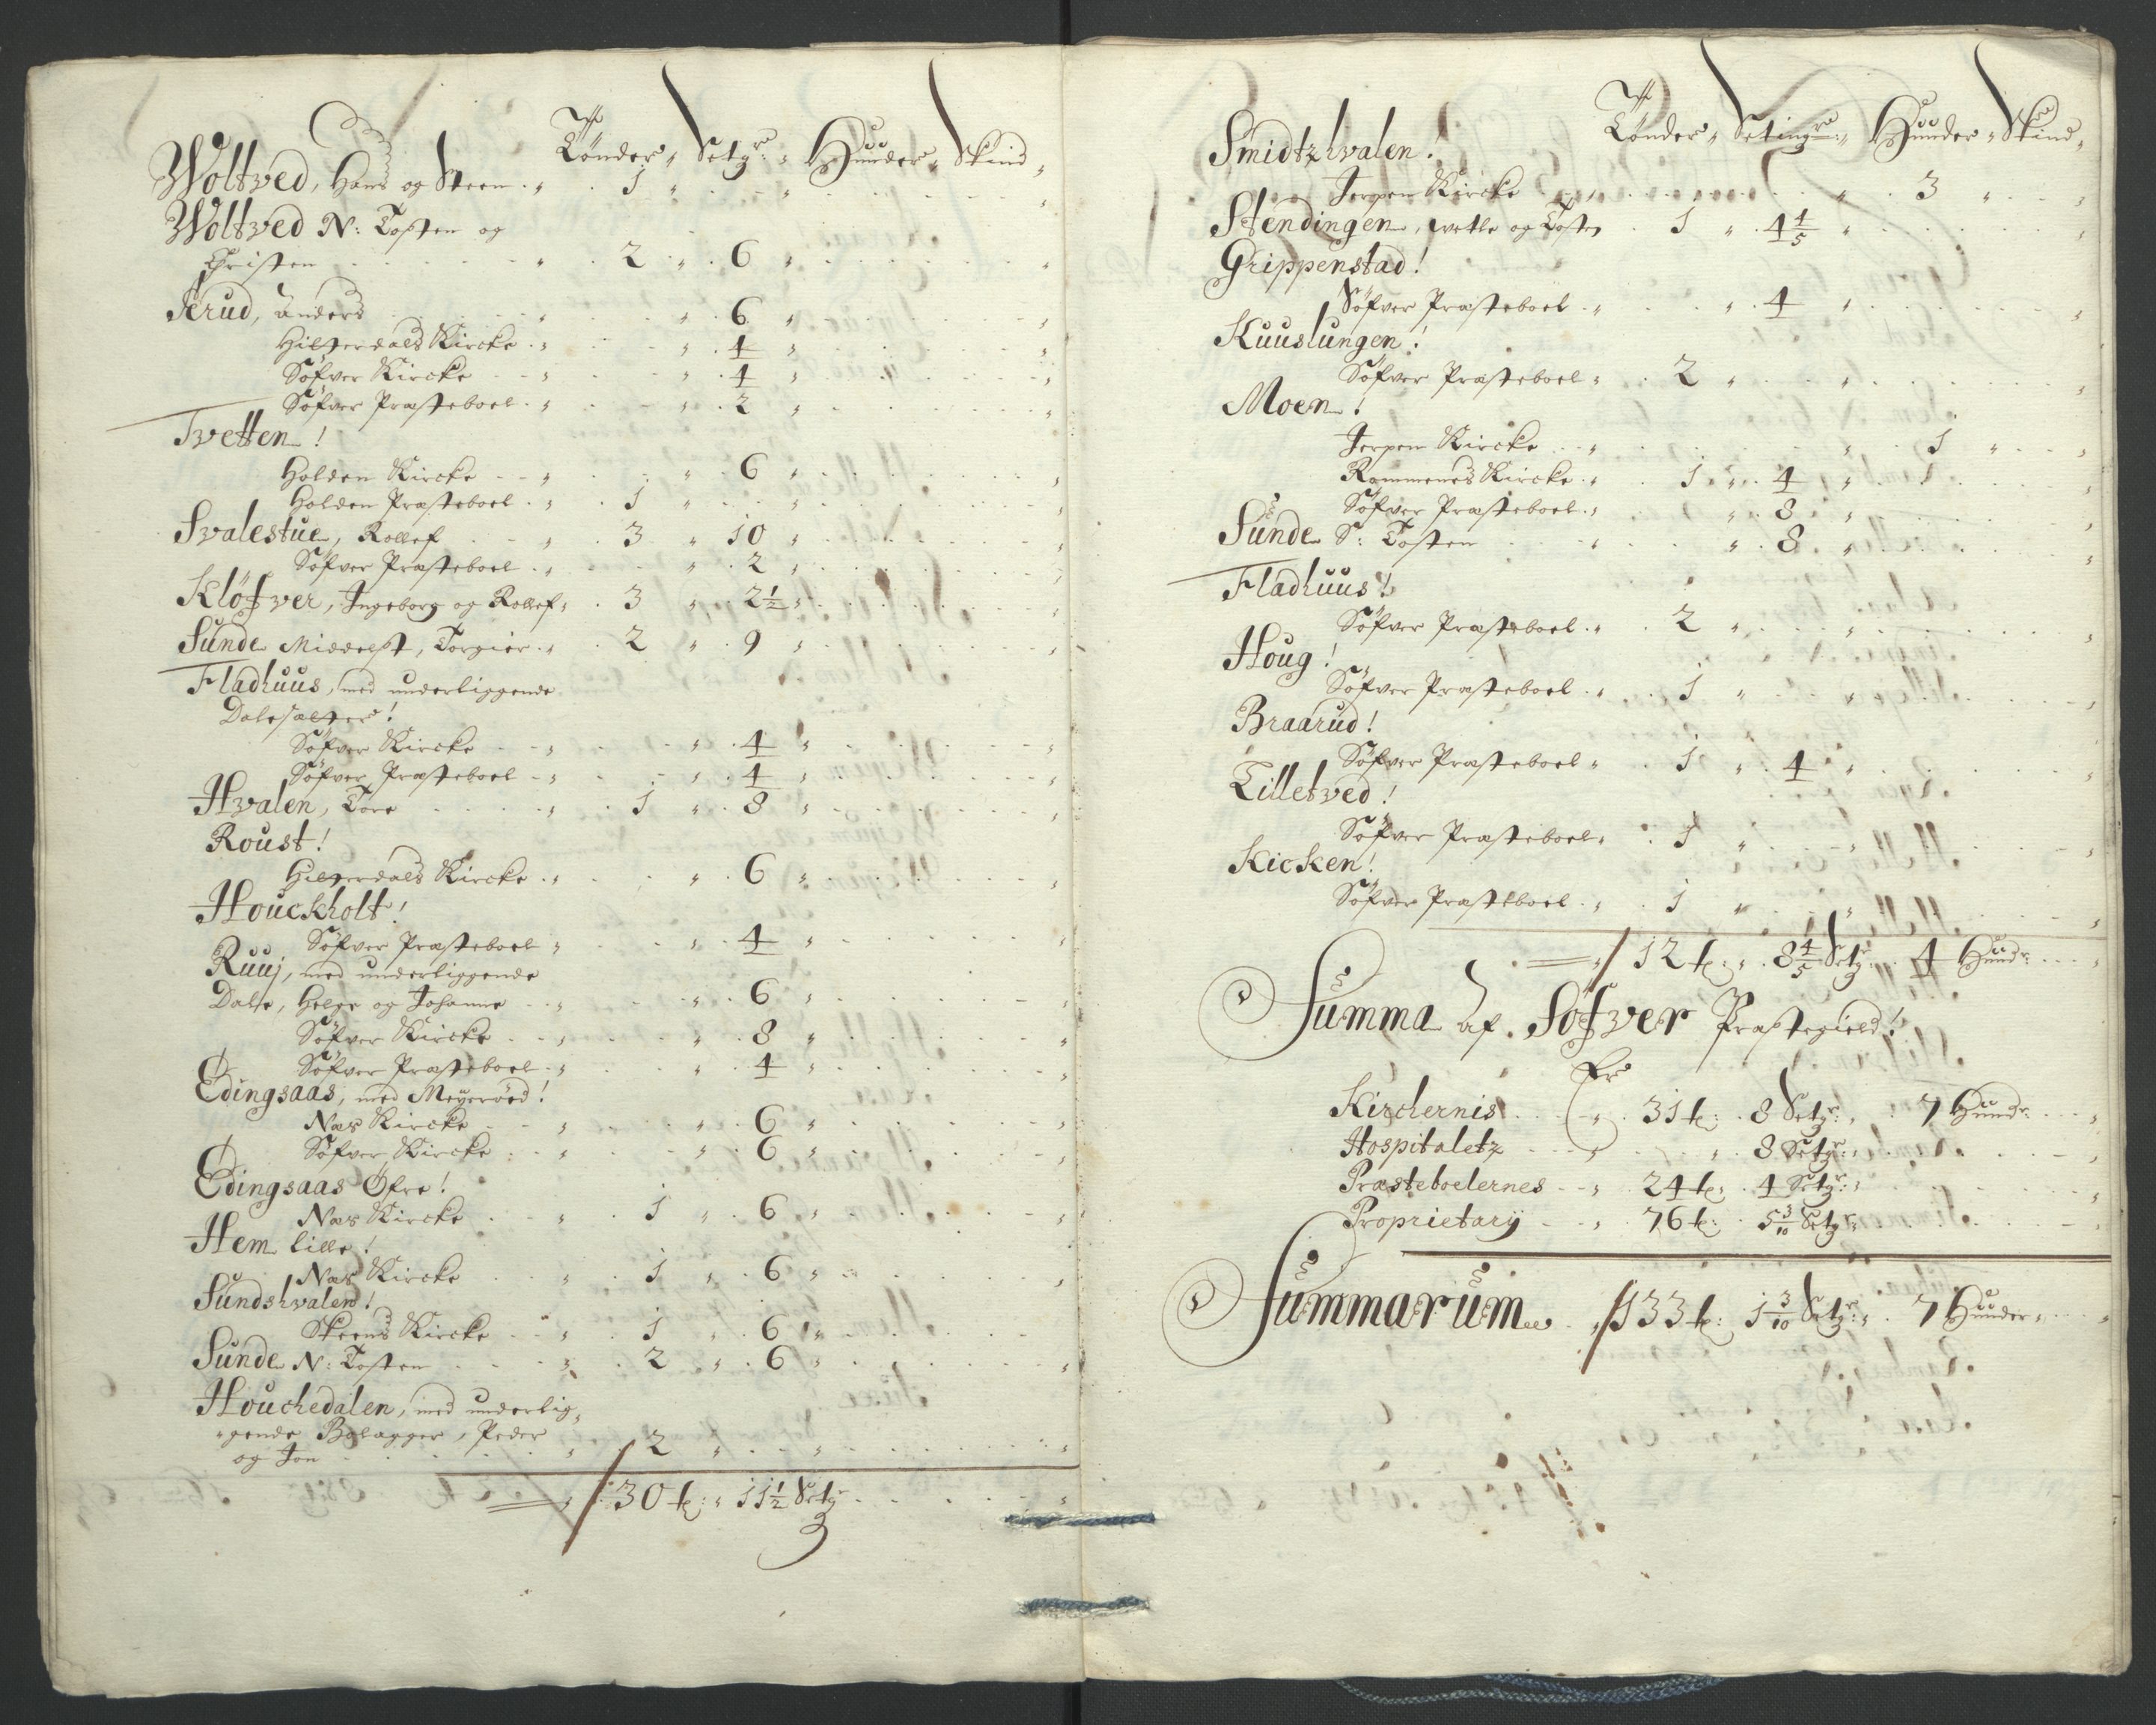 Tönder„ Setgr: „ Hunder„ Skind„
Woltved, Hans og Steen „ 1 „ „ „
Woltved N: Tosten og
Christen „ 2 „ 6 „ „
Ierud, Anders „ „ 6 „ „
Hitterdals Kircke „ „ 4 „ „
Söfver Kircke „ „ 4 „ „
Söfver Præsteboel „ „ 2 „ „
Tvetten!
Holden Kircke „ „ 6 „ „
Holden Præsteboel „ 1 „ „ „
Svalestue, Rollef „ 3 „ 10 „ „
Söfver Præsteboel „ „ 2 „ „
Klöfver, Ingeborg og Rollef „ 3 „ 2½ „ „
Sunde Middelst, Torgier „ 2 „ 9 „ „
Fladhuus, med underliggende
Dalesæter!
Söfver Kircke „ „ 4 „ „
Söfver Præsteboel „ „ 4 „ „
Hvalen, Tore „ 1 „ 8 „ „
Roust!
Hitterdals Kircke „ „ 6 „ „
Houckholt!
Söfver Præsteboel „ „ 4 „ „
Ruuj, med underliggende
Dale, Helge og Johanne „ „ 6 „ „
Söfver Kircke „ „ 8 „ „
Söfver Præsteboel „ „ 4 „ „
Ødingsaas, med Meyeröed!
Næs Kircke „ „ 6 „ „
Söfver Kircke „ „ 6 „ „
Ødingsaas Øfre!
Næs Kircke „ 1 „ 6 „ „
Hem lille!
Næs Kircke „ 1 „ 6 „ „
Sundshvalen!
Skeens Kircke „ 1 „ 6 „ „
Sunde N: Tosten „ 2 „ 6 „ „
Houchedalen, med underlig„
„gende Bolagger, Peder
og Jon „ 2 „ „ „
30 t: „ 11½ Setgr

Tönder„ Setingre„ Hunder„ Skind„
Smidtzhvalen!
Jerpen Kircke „ „ „ 3 „ „
Stendingen, Wetle og Tosten 1 „ 4 4/5 „ „
Grippenstad!
Söfver Præsteboel „ „ 4 „ „
Kuuslungen!
Söfver Præsteboel „ 2 „ „ „
Moen!
Jerpen Kircke „ „ 1 „ „
Rommenes Kircke „ 1 „ 4 „ „
Söfver Præsteboel „ „ 8 „ „
Sunde S: Tosten „ „ 8 „ „
Fladhuus!
Söfver Præsteboel „ 2 „ „ „
Houg!
Söfver Præsteboel „ 1 „ „ „
Braarud!
Söfver Præsteboel „ 1 „ 4 „ „
Tilletved!
Söfver Præsteboel „ 1 „ „ „
Kicken!
Söfver Præsteboel „ 1 „ „ „
12 t: „ 8 4/5 Setgr: 4 Hundr: „
Summa af Söfver Præstegield!
Er
Kirchernis „ 31 t: 8 Setgr: „ 7 Hundr: „
Hospitaletz „ „ 8 Setgr: „
Præsteboelernes „ 24 t: 4 Setgr: „
Proprietarij „ 76 t: 5 3/10 Setgr: „
Summarum „ 133 t: 1 3/10 Setgr: „ 7 Hunder „